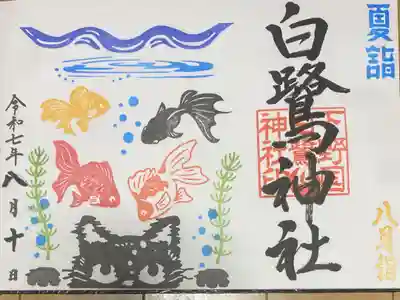 夏詣
八月詣
白鷺神社
下野国
神社印
令和七年八月十日